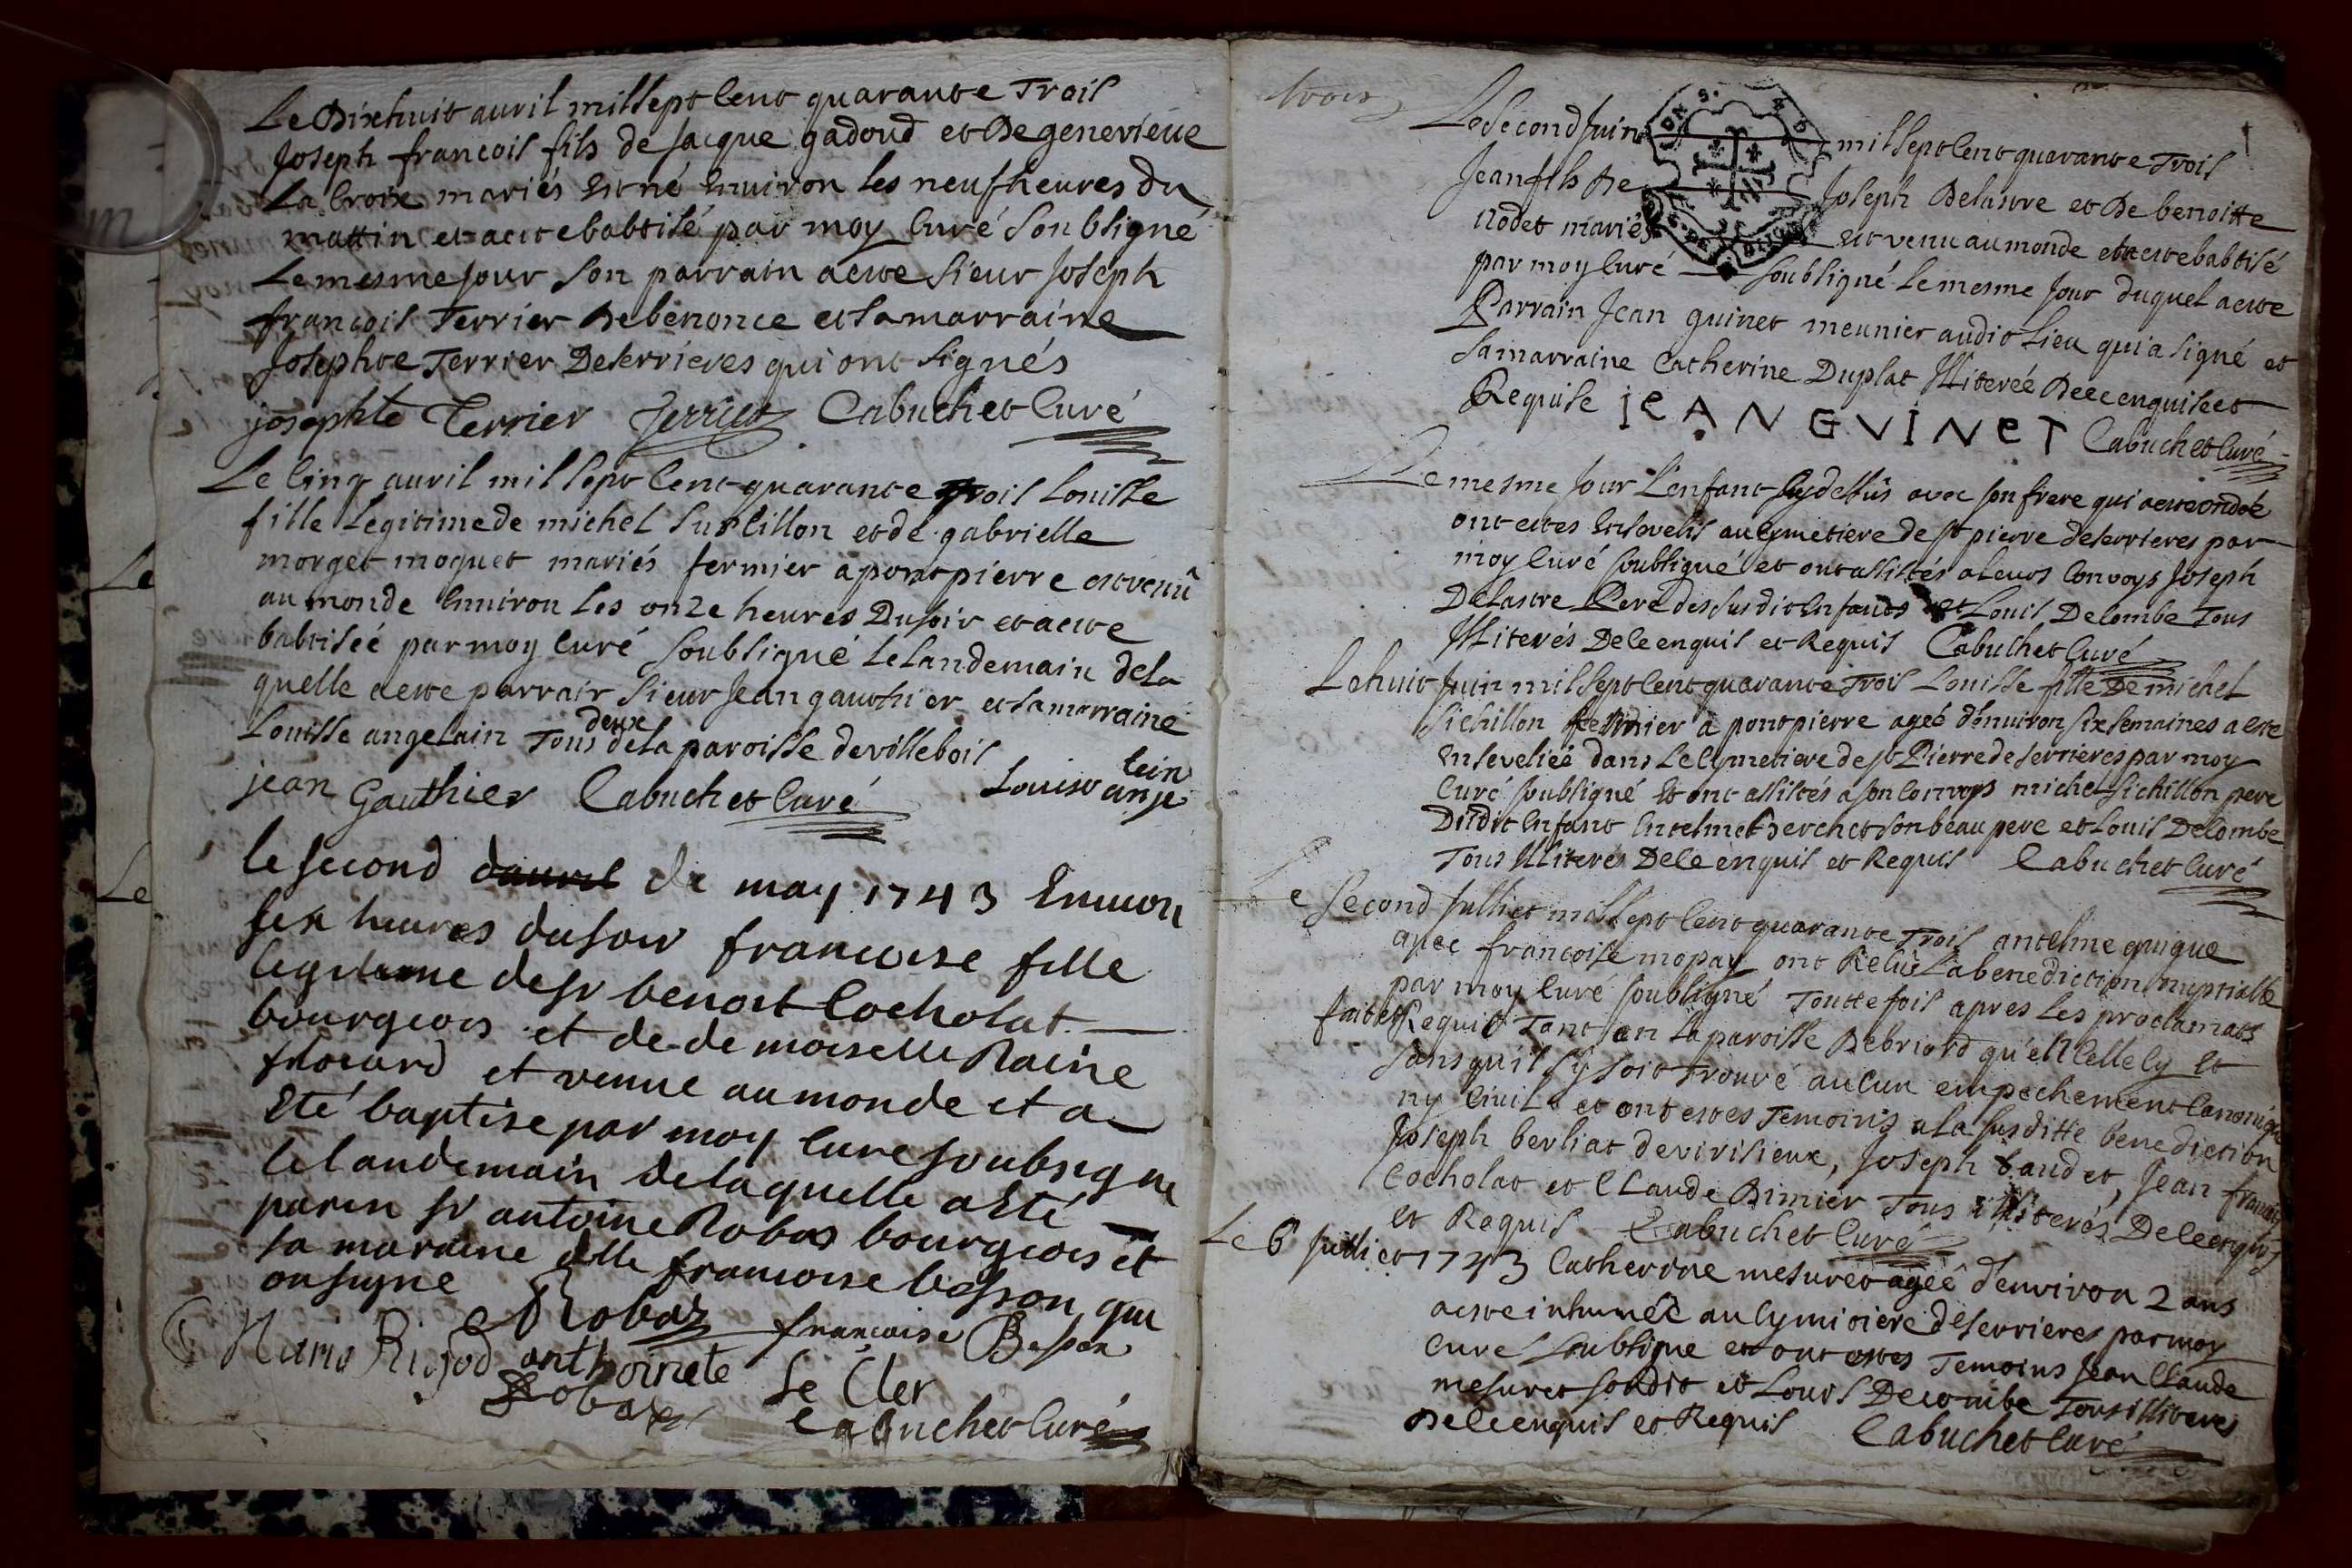 Le Dixhuit auril mil sept Cent quarante Trois
Joseph francois fils de Jacque gadoud et De genevieue
La Croix mariés est né enuiron les neuf heures du
mattin et a este babtisé par moy Curé Soubsigné
Le mesme Jour Son parrain a este Sieur Joseph
francois Terrier De benonce et Sa marraine
Josephte Terrier De serrieres qui ont Signés
josephte Terrier Terrier Cabuchet Curé
Le Cinq auril mil Sept Cent quarante Trois Louisse
fille Legitime de michel et de gabrielle
morget moquet mariés fermier a pontpierre est venû
au monde Enuiron Les onze heures Du soir et a este
babtiseé par moy Curé Soubsigné Le Landemain de La
quelle a este parrain Sieur Jean gauthier et Sa marraine
Louisse angelain Tous deux de La paroisse de villebois
jean Gauthier Cabuchet Curé Louise anje lein
le second dauril de may 1743 Enuiron
six heures du soir francoise fille
legitime de sr benoit Cocholat
bourgeois et de demoiselle Raine
et venue au monde et a
Eté baptise par moy Cure soubsigne
le landemain de laquelle a Eté
parin sr antoine Robas bourgeois et
sa maraine dlle francoise besson qui
on signe Robaz françoise Besson
Marie Rigod anthoinete
Robaz Le Cler
Cabuchet Curé
Le
Le
trois
Le Second Juin mil Sept Cent quarante Trois
Jean fils De Joseph Delastre et De benoitte
nodet mariés est venu au monde et a este babtisé
par moy Curé Soubsigné Le mesme Jour duquel a este
Parrain Jean guinet meunier audit Lieu qui a signé et
Sa marraine Catherine Duplat Illitereé De ce enquise et
Requise jeAN GVINeT Cabuchet Curé
Le mesme Jour L'enfant Cy dessus avec son frere qui a este ondoié
ont estes Ensevelis au Cymetiere de st pierre de serrieres par
moy Curé soubsigné et ont assistés a Leurs Convoys Joseph
Delastre Pere des susdit Enfants et Louis Delombe Tous
Illiterés De ce enquis et Requis Cabuchet Curé
Le huit Juin mil Sept Cent quarante Trois Louisse fille De michel
Sichillon fermier a pontpierre ageé d'enuiron six semaines a este
Enseveliee dans Le Cymetiere de st Pierre de serrieres par moy
Curé soubsigné Et ont assistés a son Convoys michel Sichillon pere
Dudit Enfant Entelme Son beau pere et Louis Delombe
Tous Illiterés De ce enquis et Requis Cabuchet Curé
Le Second Julliet mil Sept Cent quarante Trois antelme guigue
avec francoise mopay ont Recûe La benediction nuptialle
par moy Curé soubsigné Touttefois apres Les proclamats
faites Requis Tant en La paroisse De briord qu'en Celle Cy Et
Sans quil s'y soit trouvé aucun empechement Canonique
ny Ciuil et ont estes Temoins a La Susditte benediction
Joseph berliat de virisieux, Joseph baudet, Jean francois
Cocholat et Claude Dimier Tous Illiterés De ce enquis
et Requis Cabuchet Curé
Le 6 Julliet 1743 Catherine mesuret ageê d'environ 2 ans
a este inhumeé au Cymitiere de serrieres par moy
Curé Soubsigne et ont estes Temoins Jean Claude
mesuret et Louis Decombe Tous illiteres
De ce enquis et Requis Cabuchet Curé